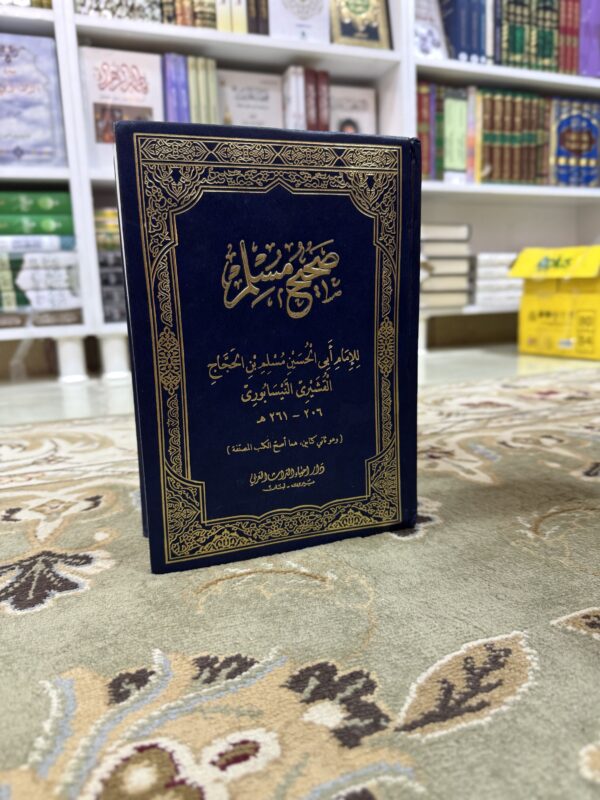 صَحِيحُ مُسْلِمٍ
لِلإِمَامِ أَبِي الْحُسَيْنِ مُسْلِمِ بْنِ الْحَجَّاجِ
الْقُشَيْرِيِّ النَّيْسَابُورِيِّ
٢٠٦ - ٢٦١ هـ
( وهو ثاني كتابين، هما أصح الكتب المصنفة )
دار إحياء التراث العربي
بيروت - لبنان